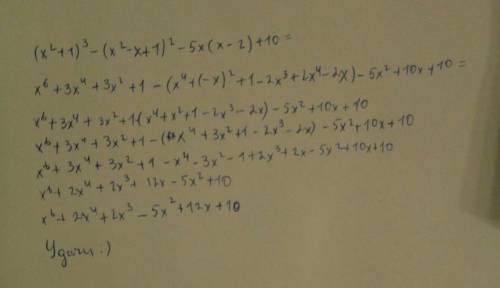 (x²+1)³-(x²-x+1)²-5x(x-2)+10=
x⁶+3x⁴+3x²+1-(x⁴+(-x)²+1-2x³+2x⁴-2x)-5x²+10x+10=
x⁶+3x⁴+3x²+1-(x⁴+x²+1-2x³-2x)-5x²+10x+10
x⁶+3x⁴+3x²+1-(x⁴+3x²+1-2x³-2x)-5x²+10x+10
x⁶+3x⁴+3x²+1-x⁴-3x²-1+2x³+2x-5x²+10x+10
x⁶+2x⁴+2x³+12x-5x²+10
x⁶+2x⁴+2x³-5x²+12x+10
Удачи :)